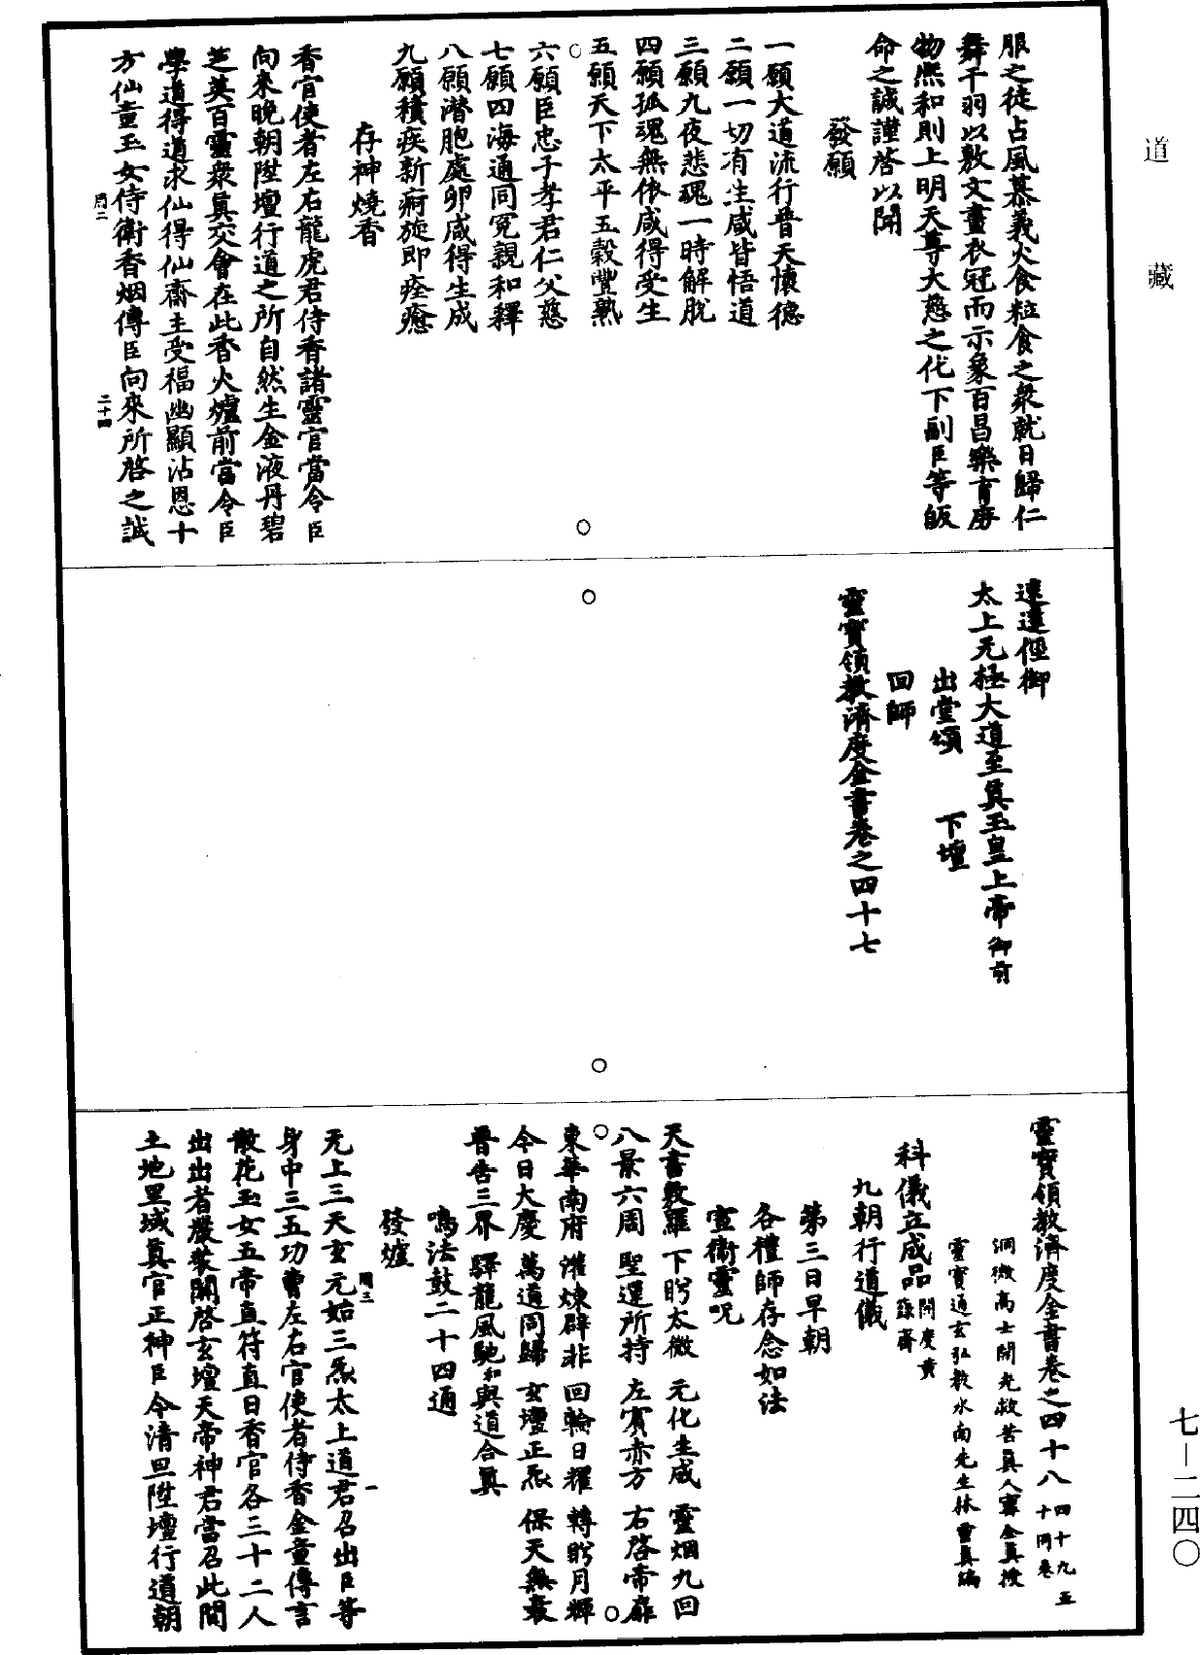 道藏
服之徒占風慕義火食粒食之衆就日歸仁
舞干羽以敷文畫衣冠而示象百昌樂育庶
物熙和則上明天尊大慈之化下副臣等皈
命之誠謹啓以聞
發願
一願大道流行普天懷德
二願一切有生咸皆悟道
三願九夜悲魂一時解脫
四願孤魂無依咸得受生
五願天下太平五穀豐熟
六願臣忠子孝君仁父慈
七願四海通同冤親和釋
八願潜胞處卵咸得生成
九願積疾新痾旋即痊癒
存神燒香
香官使者左右龍虎君侍香諸靈官當令臣
向來晚朝陞壇行道之所自然生金液丹碧
芝英百靈衆真交會在此香火爐前當令臣
學道得道求仙得仙齋主受福幽顯沾恩十
方仙童玉女侍衛香烟傳臣向來所啓之誠
周二
二十四
速達徑御
太上无極大道至真玉皇上帝御前
出堂頌 下壇
回師
靈寶領教濟度金書卷之四十七
靈寶領教濟度金書卷之四十八 四十九五十同卷
洞微高士開光救苦真人寗全真授
靈寶通玄弘教水南先生林靈真編
科儀立成品 開度黄籙齋
九朝行道儀
第三日早朝
各禮師存念如法
宣衛靈呪
天書敷羅 下盻太微 元化生成 靈烟九回
八景六周 聖還所持 左賓赤方 右啓帝扉
東華南府 灌煉辟非 回輪日耀 轉盻月輝
今日大慶 萬道同歸 玄壇正炁 保天無衰
普告三界 驛龍風馳 和與道合真
鳴法鼓二十四通
發爐
无上三天玄元始三炁太上道君召出臣等
身中三五功曹左右官使者侍香金童傳言
散花玉女五帝直符直日香官各三十二人
出出者嚴裝關啓玄壇天帝神君當召此間
土地里域真官正神臣今清旦陞壇行道朝
周三
一
七—二四〇